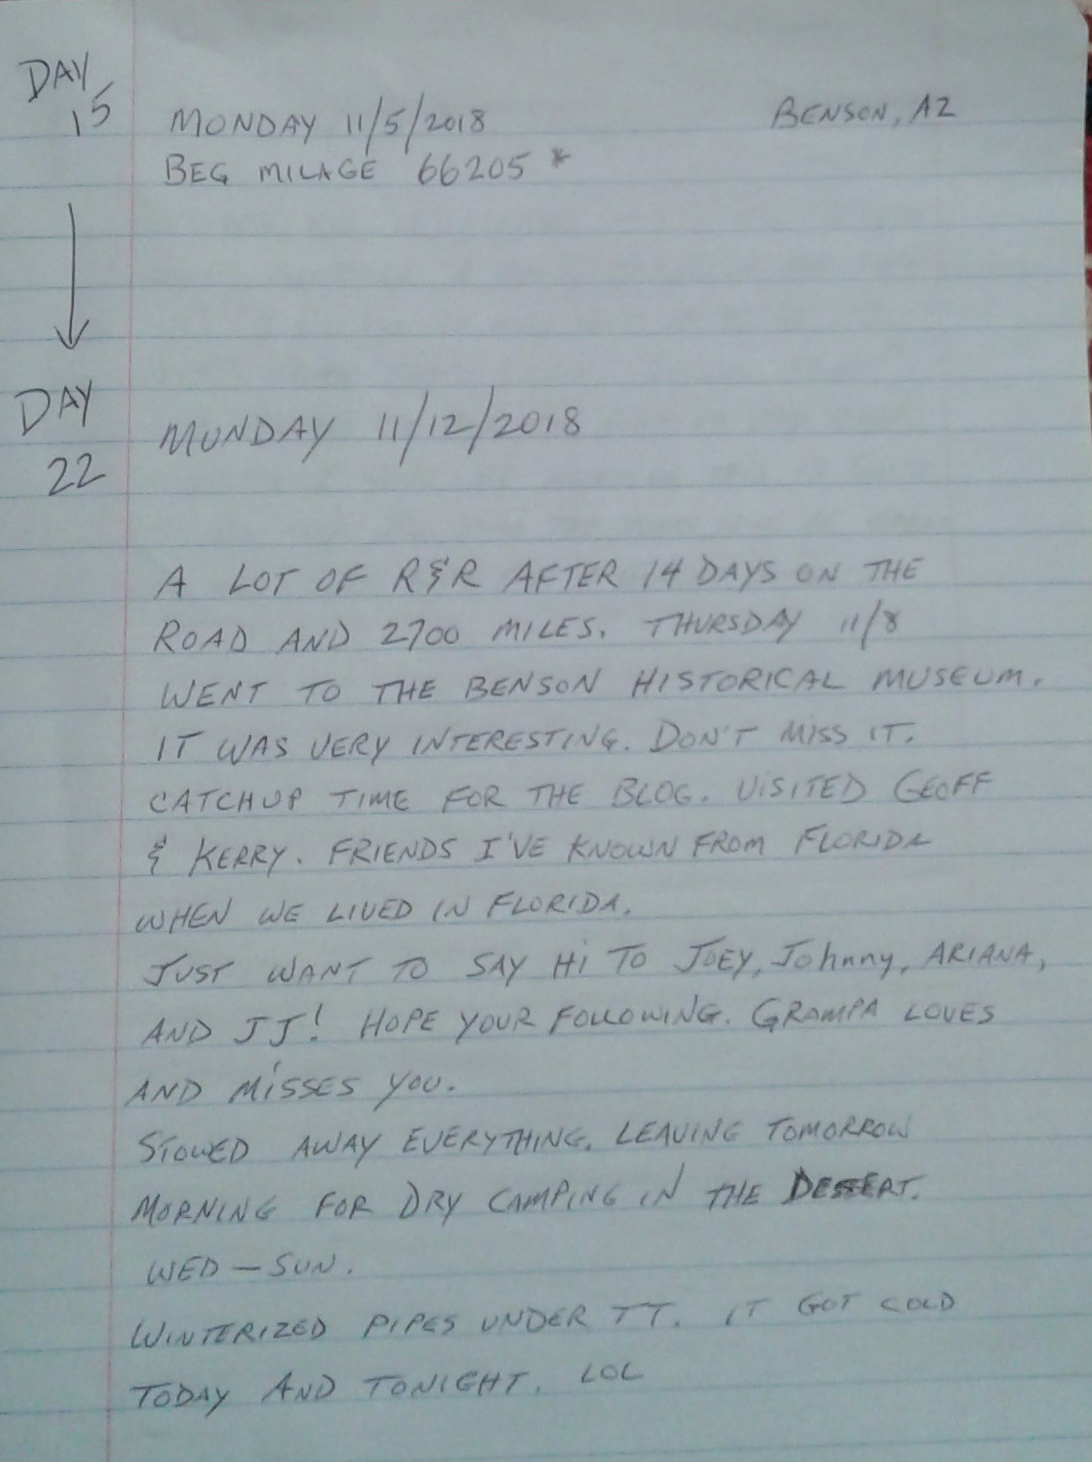 DAY
15
MONDAY 11/5/2018
BENSON, AZ
BEG MILAGE 66205 *
DAY
22
MONDAY 11/12/2018
A LOT OF R&R AFTER 14 DAYS ON THE
ROAD AND 2700 MILES. THURSDAY 11/8
WENT TO THE BENSON HISTORICAL MUSEUM.
IT WAS VERY INTERESTING. DON'T MISS IT.
CATCHUP TIME FOR THE BLOG. VISITED GEOFF
& KERRY. FRIENDS I'VE KNOWN FROM FLORIDA
WHEN WE LIVED IN FLORIDA.
JUST WANT TO SAY Hi TO JOEY, Johnny, ARIANA,
AND JJ! HOPE YOUR FOLLOWING. GRAMPA LOVES
AND MiSSES YOU.
STOWED AWAY EVERYTHING. LEAVING TOMORROW
MORNING FOR DRY CAMPING IN THE DESERT.
WED — SUN.
WINTERIZED PIPES UNDER TT. IT GOT COLD
TODAY AND TONIGHT. LOL